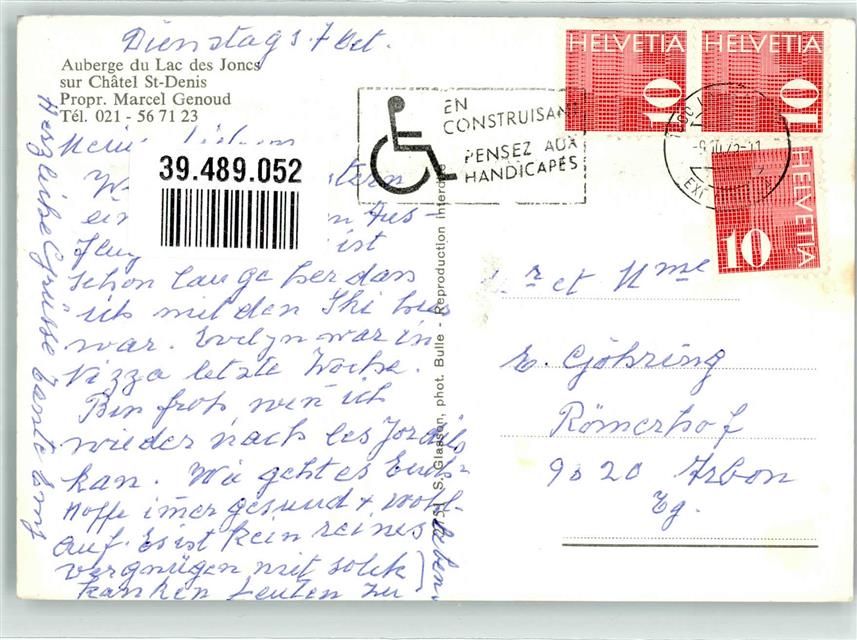 Dienstag 7 Oct.
Auberge du Lac des Joncs
sur Châtel St-Denis
Propr. Marcel Genoud
Tél. 021 - 56 71 23
39.489.052
ein Aus-
flug ist
schon lange her dass
ich mit den Ski hier
war. Evelyn war in
Nizza letzte Woche.
Bin froh wen̄ ich
wieder nach les Jordils
kan. Wie geht es Euch-
Hoffe im̄er gesund + wohl-
auf. Es ist kein reines
vergnügen mit solch
kranken Leuten zu
leben
Herzliche Grüsse Tante Emy
S. Glasson, phot. Bulle - Reproduction interdite
EN
CONSTRUISANT
PENSEZ AUX
HANDICAPÉS
HELVETIA
10
HELVETIA
10
HELVETIA
10
Mr et Mme
E. Gjöhring
Römerhof
9020 Arbon
Tg.